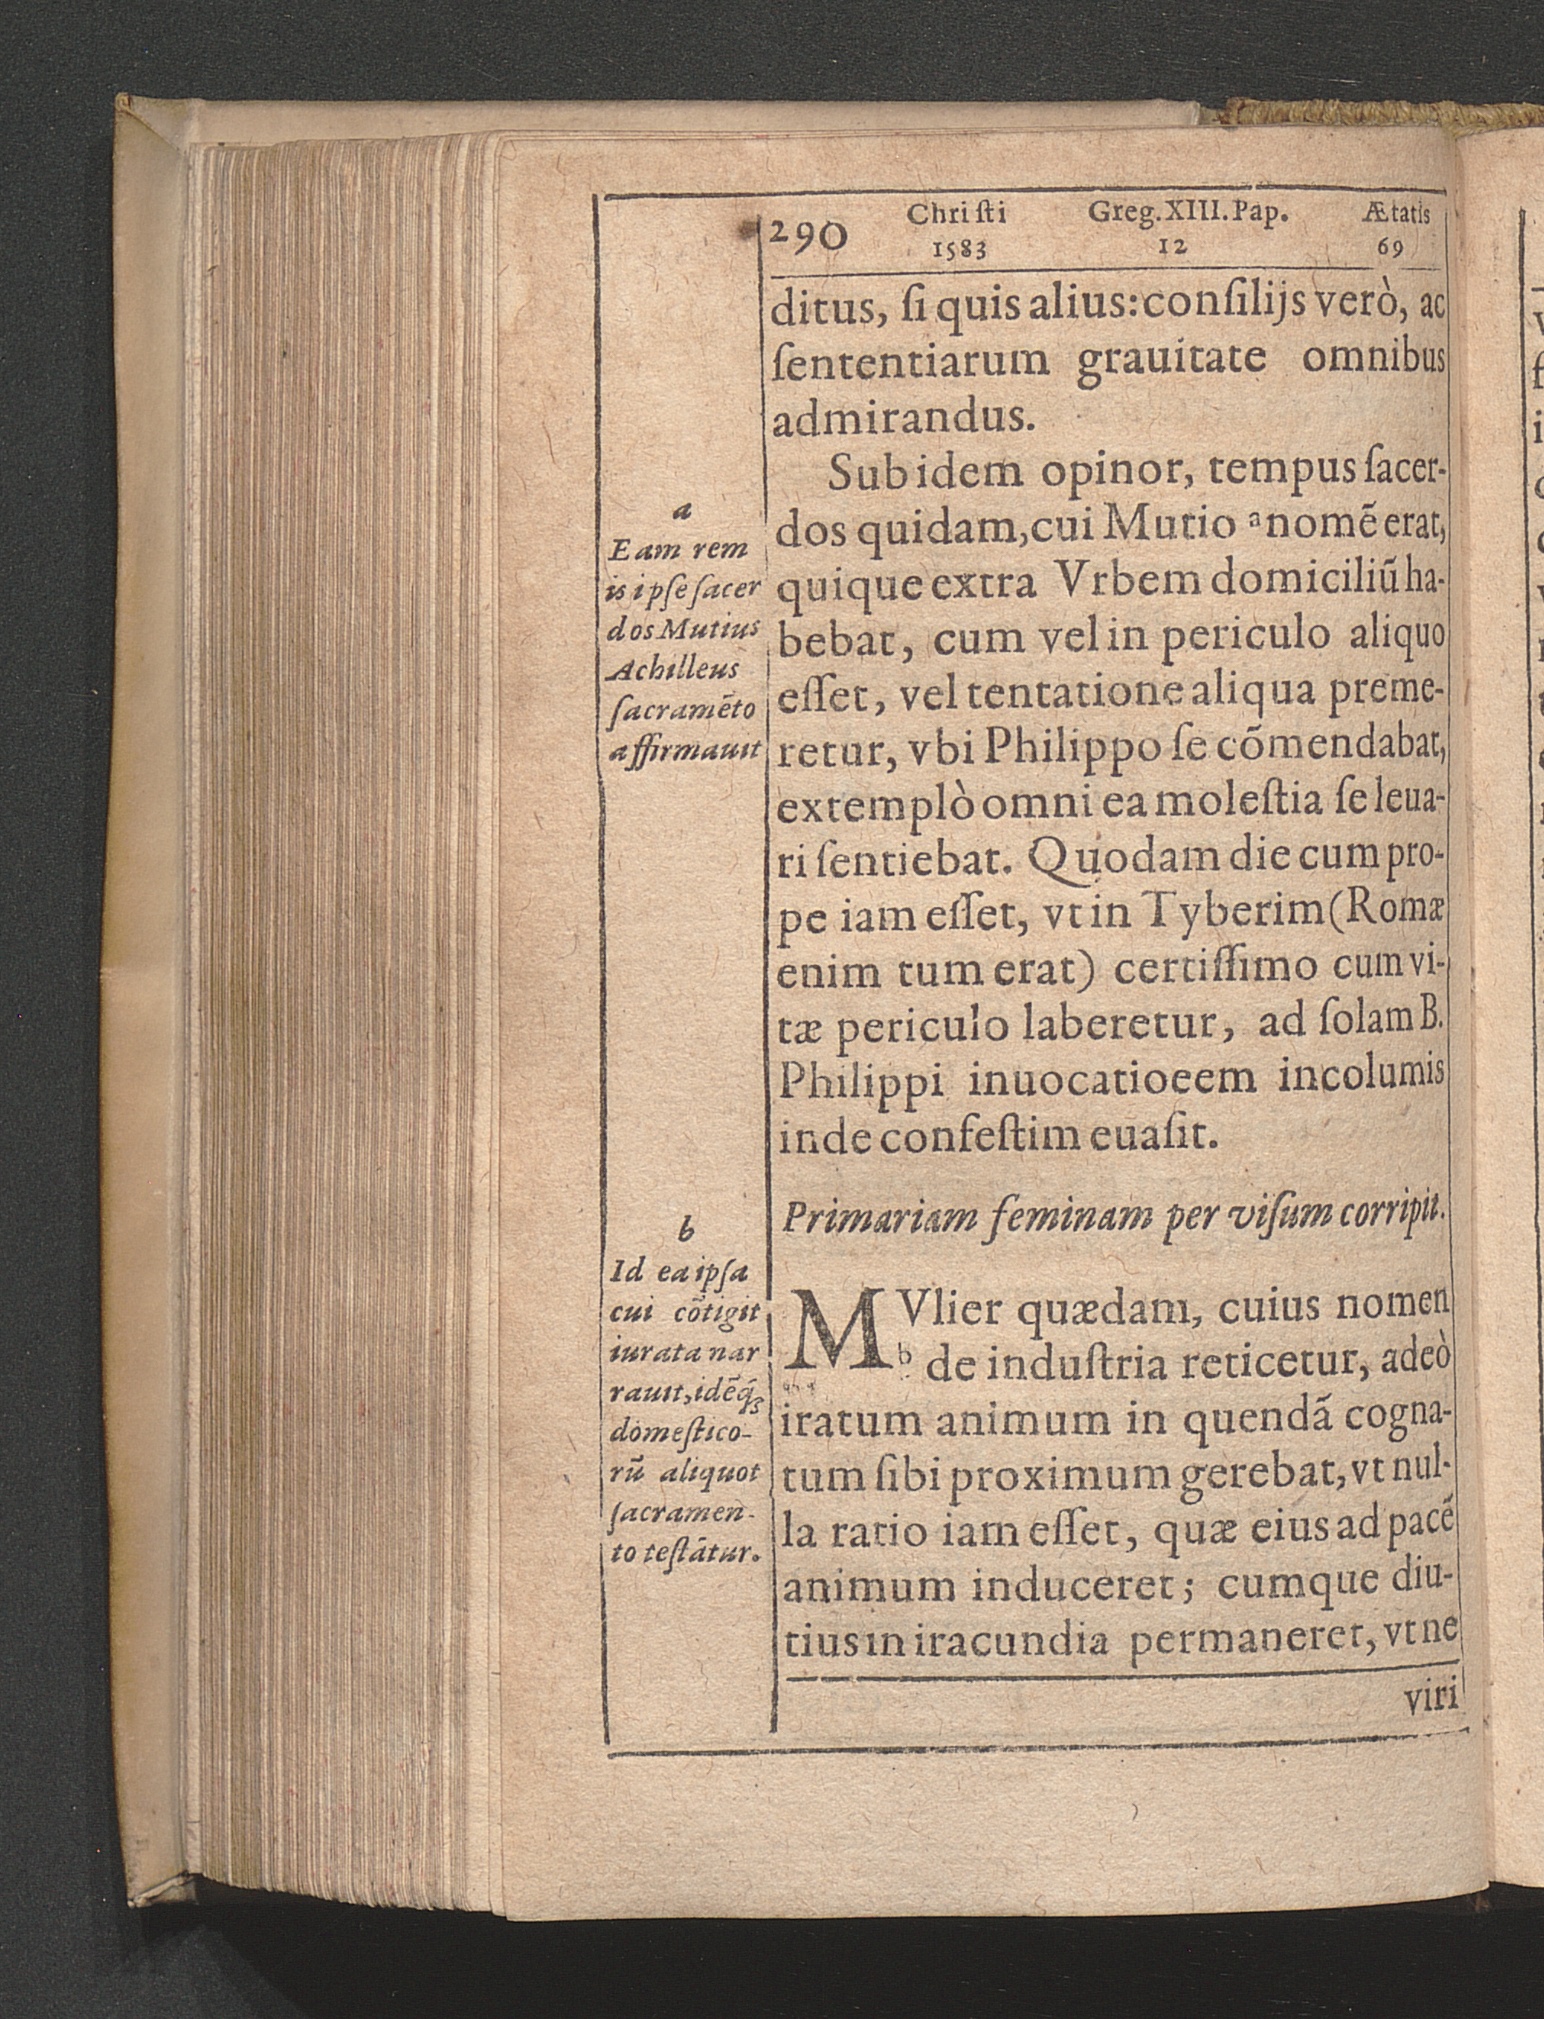 290 Christi Greg.XIII.Pap. Ætatis
1583 12 69
ditus, ſi quis alius:conſilijs verò, ac
ſententiarum grauitate omnibus
admirandus.
Sub idem opinor, tempus ſacer-
dos quidam,cui Mutio ᵃ nomẽ erat,
quique extra Vrbem domiciliũ ha-
bebat, cum vel in periculo aliquo
eſſet, vel tentatione aliqua preme-
retur, vbi Philippo ſe cõmendabat,
extemplò omni ea moleſtia ſe leua-
ri ſentiebat. Quodam die cum pro-
pe iam eſſet, vt in Tyberim (Romæ
enim tum erat) certiſſimo cum vi-
tæ periculo laberetur, ad ſolam B.
Philippi inuocatioeem incolumis
inde confeſtim euaſit.
a
Eam rem
is ipſe ſacer
dos Mutius
Achilleus
ſacramẽto
affirmauit
Primariam feminam per viſum corripit.
MVlier quædam, cuius nomen
ᵇ de induſtria reticetur, adeò
iratum animum in quendã cogna-
tum ſibi proximum gerebat, vt nul-
la ratio iam eſſet, quæ eius ad pacẽ
animum induceret; cumque diu-
tius in iracundia permaneret, vt ne
viri
b
Id ea ipſa
cui cõtigit
iurata nar
rauit, idẽq́;
domeſtico-
rũ aliquot
ſacramen-
to teſtãtur.